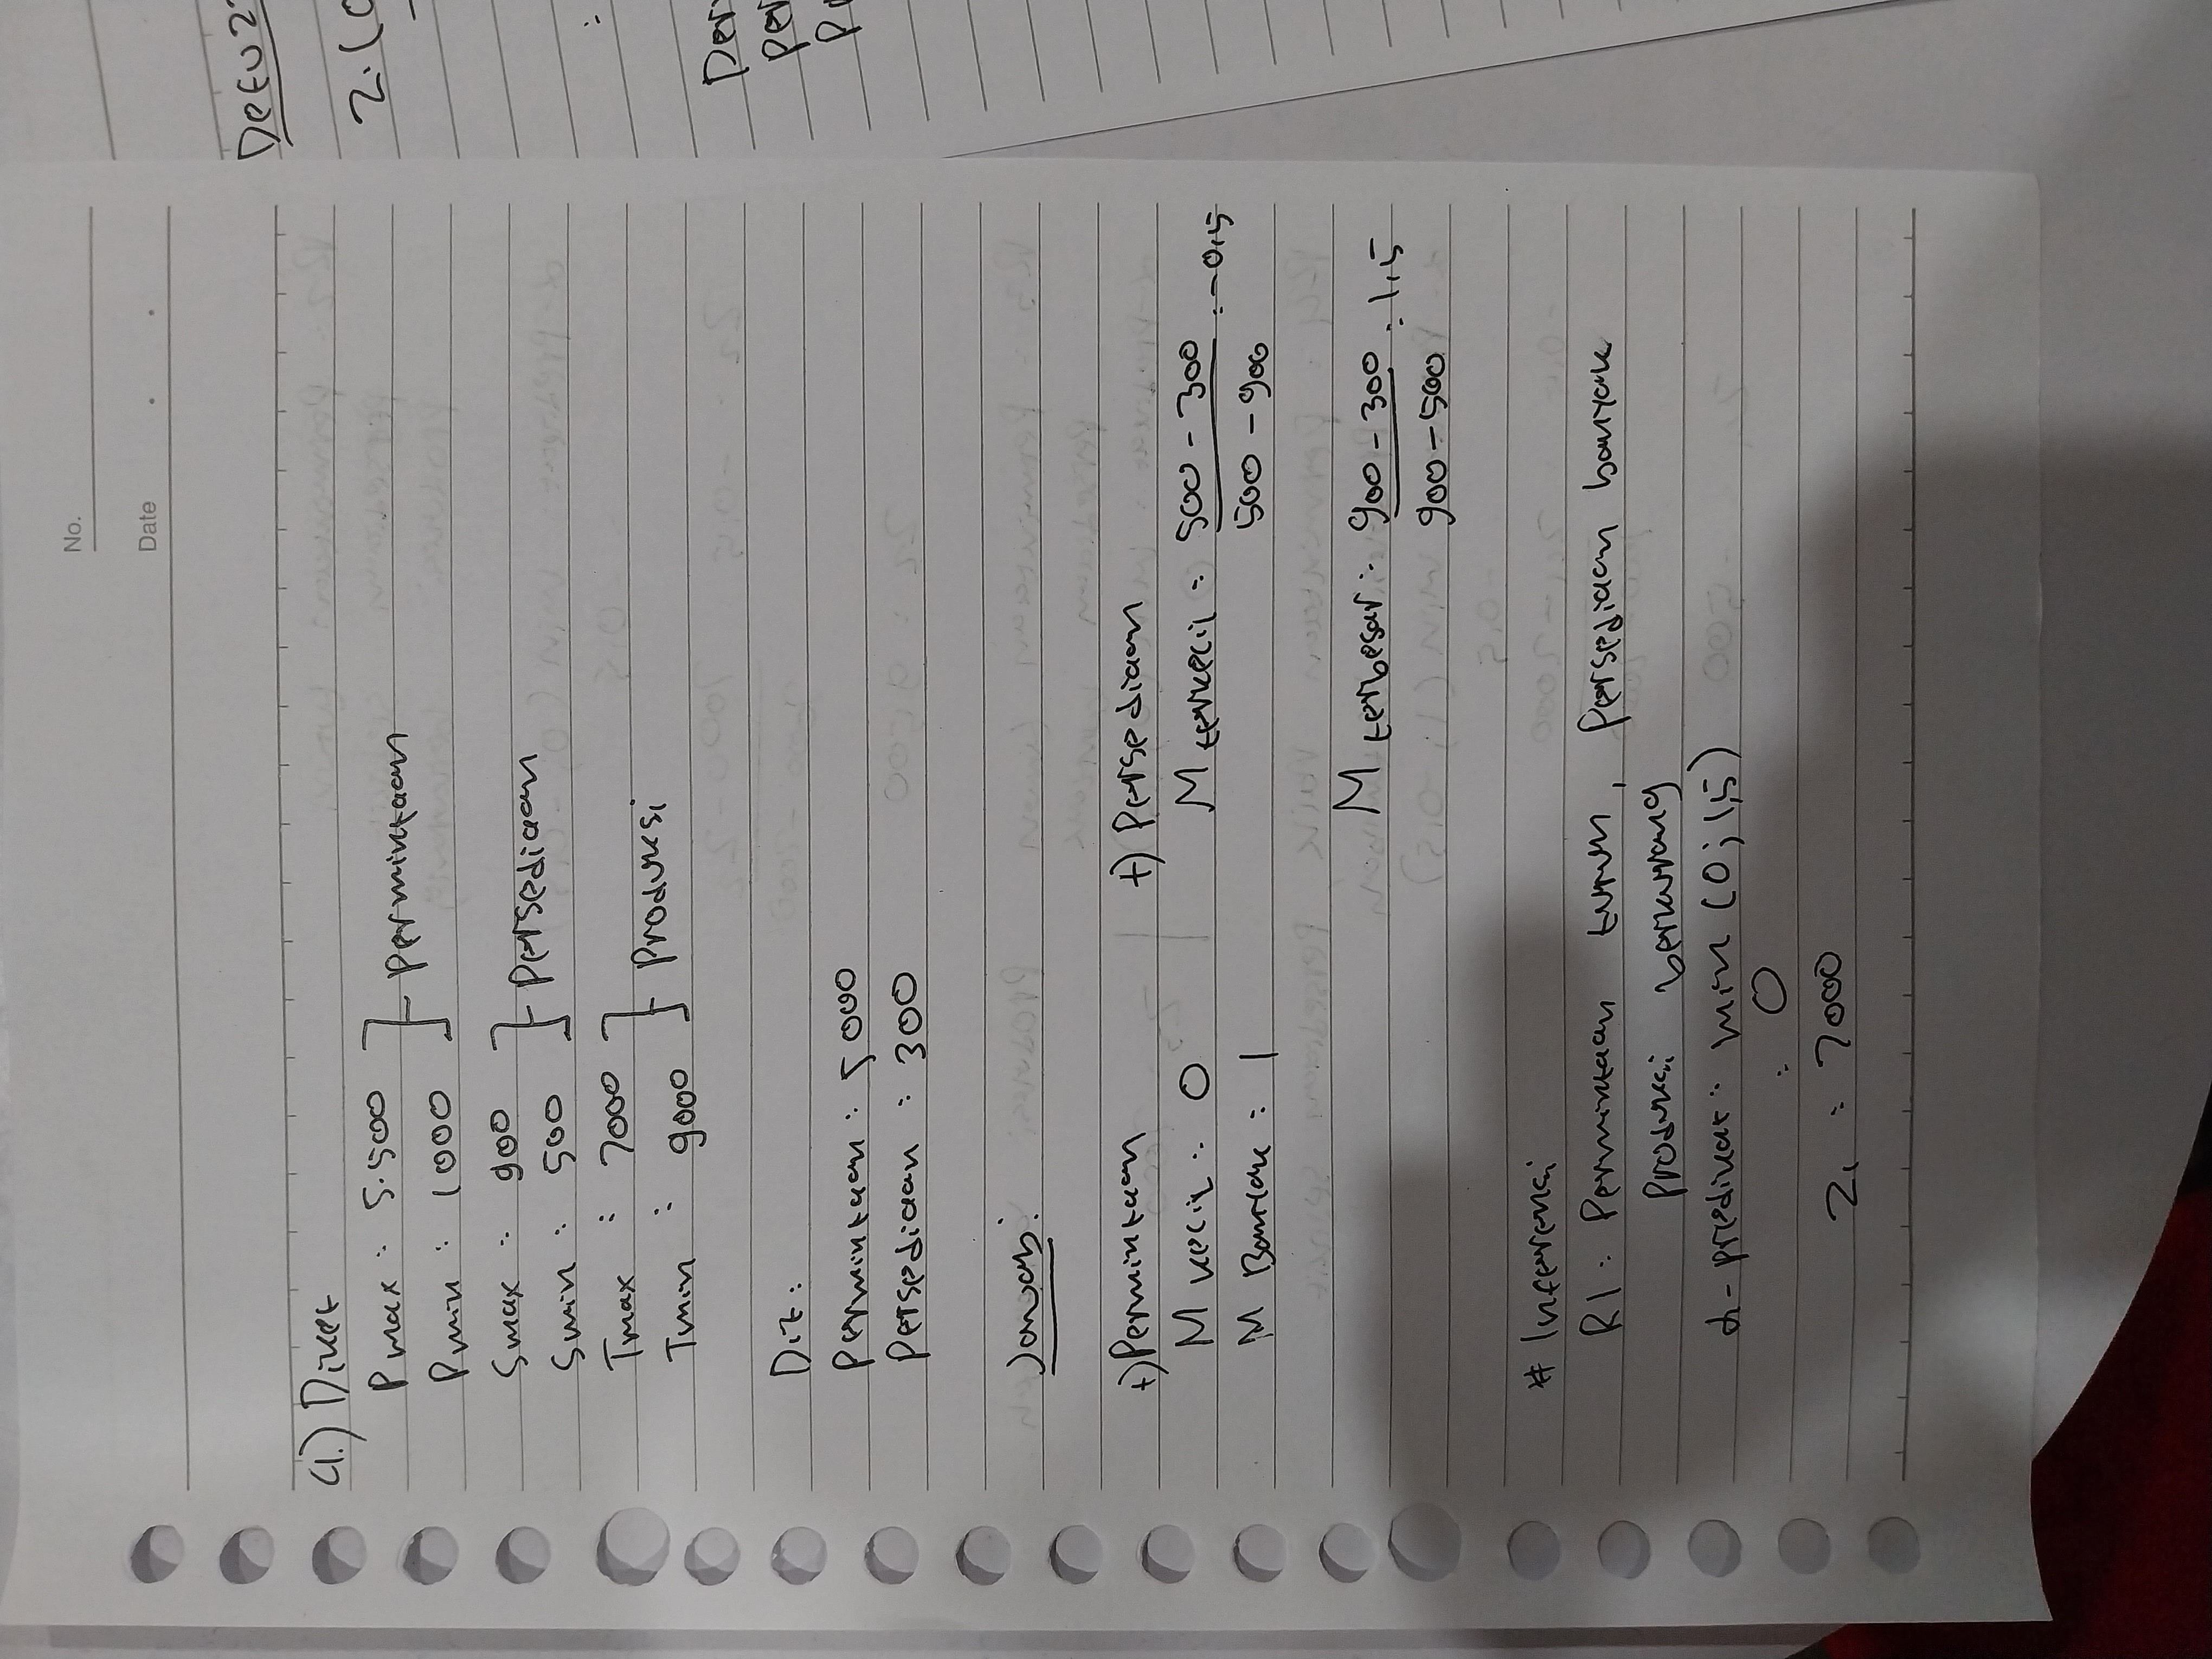 No.
Date . .
1.) Diket
Pmax : 5.500 } Permintaan
Pmin : 1000
Smax : 900 } Persediaan
Smin : 500
Tmax : 7000 } Produksi
Tmin : 9000
Dit :
Permintaan : 5000
Persediaan : 300
Jawab :
+) Permintaan
M kecil : 0
M Banyak : 1
+) Persediaan
M terkecil : 500 - 300 / 500 - 900 : -0,5
M terbesar : 900 - 300 / 900 - 500 : 1,5
# Inferensi
R1 : Permintaan turun, Persediaan banyak
Produksi berkurang
α-predikat : min (0; 1,5)
: 0
Z1 : 7000
Z.(0
:
Per
Per